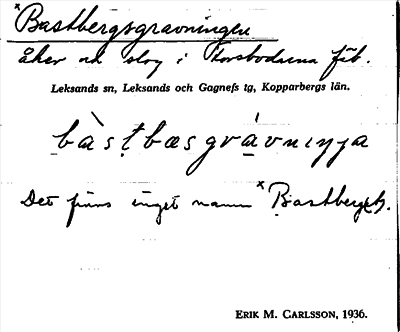 ×Bastbergsgravningen
åker och slog i Storbodarna fäb.
Leksands sn, Leksands och Gagnefs tg, Kopparbergs län.
bàstbæsgrávniŋja
Det finns inget namn ×Bastberget.
Erik M. Carlsson, 1936.